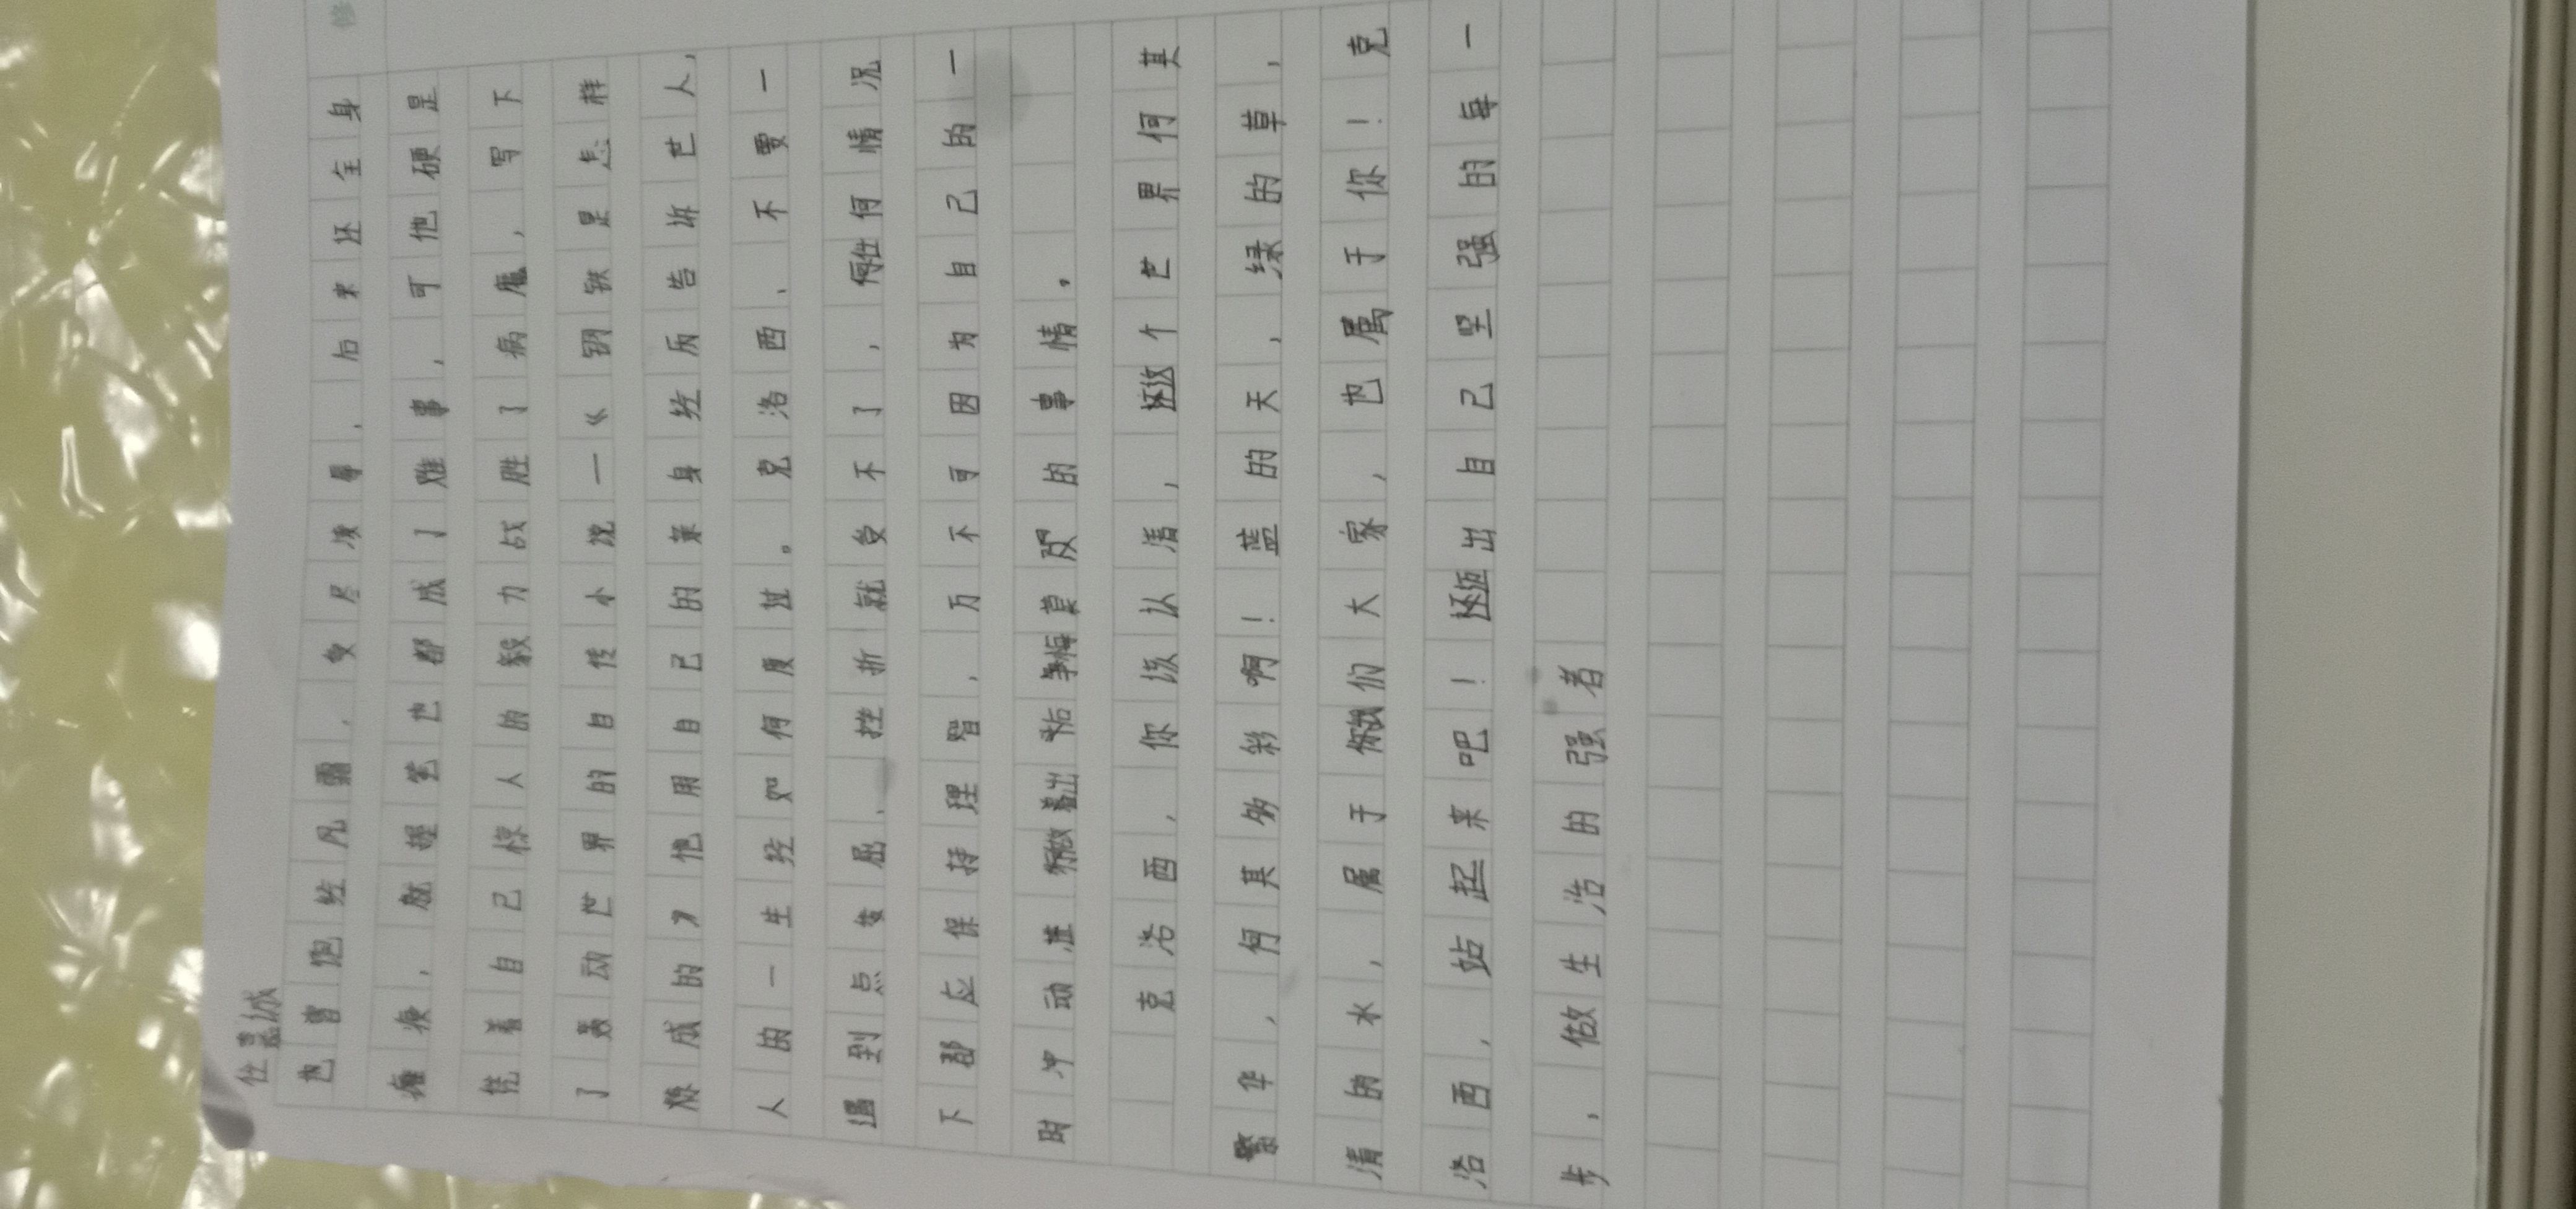 任嘉诚
也曾饱经风霜，受尽凌辱，后来还全身
瘫痪，就握笔也都成了难事，可他硬是
凭着自己惊人的毅力战胜了病魔，写下
了轰动世界的自传小说—《钢铁是怎样
炼成的》他用自己的亲身经历告诉世人，
人的一生经如何度过。克洛西、不要一
遇到点委屈、挫折就受不了，任何情况
下都应保持理智，万不可因为自己的一
时冲动做出后悔莫及的事情。
克洛西，你该认清，这个世界何其
繁华，何其多彩啊！蓝的天，绿的草，
清的水，属于我们大家，也属于你！克
洛西，站起来吧！迈出自己坚强的每一
步，做生活的强者